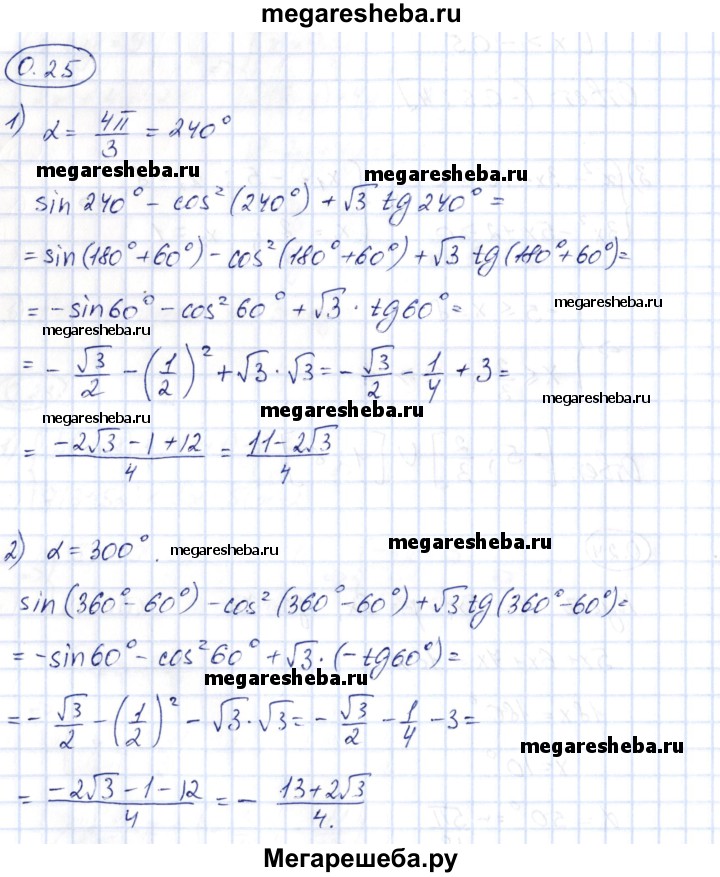 megaresheba.ru
0.25
1) α = 4π/3 = 240°
megaresheba.ru megaresheba.ru
sin 240° - cos² (240°) + √3 tg 240° =
= sin(180° + 60°) - cos² (180° + 60°) + √3 tg (180° + 60°) =
megaresheba.ru
= - sin 60° - cos² 60° + √3 · tg 60° =
megaresheba.ru
= - √3/2 - (1/2)² + √3 · √3 = - √3/2 - 1/4 + 3 =
megaresheba.ru
megaresheba.ru megaresheba.ru
= (-2√3 - 1 + 12)/4 = (11 - 2√3)/4
2) α = 300°. megaresheba.ru megaresheba.ru
sin (360° - 60°) - cos² (360° - 60°) + √3 tg (360° - 60°) =
= - sin 60° - cos² 60° + √3 · (- tg 60°) =
megaresheba.ru
= - √3/2 - (1/2)² - √3 · √3 = - √3/2 - 1/4 - 3 =
megaresheba.ru
= (-2√3 - 1 - 12)/4 = - (13 + 2√3)/4.
Мегарешеба.ру